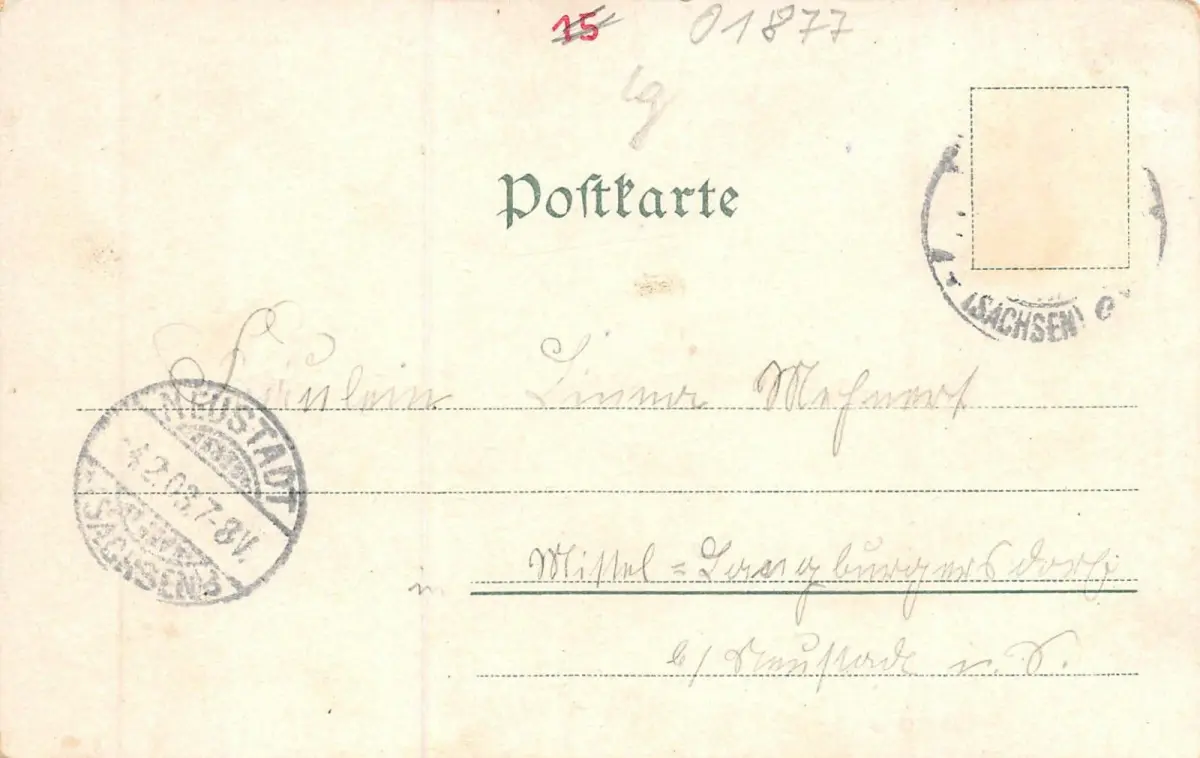 15 01877
Postkarte
(SACHSEN)
Fräulein Linna Mehnert
NEUSTADT
4.2.03.7-8V.
(SACHSEN)
Mittel=Langburgersdorf
in
b/ Neustadt i. S.